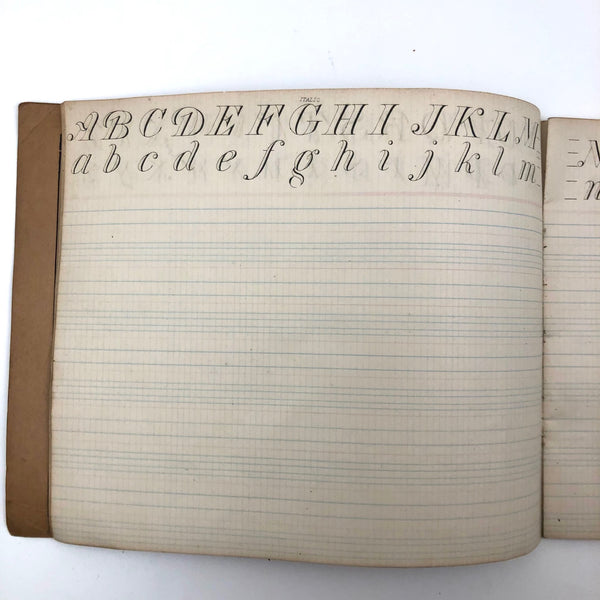 ITALIC
A B C D E F G H I J K L M
a b c d e f g h i j k l m
N
n